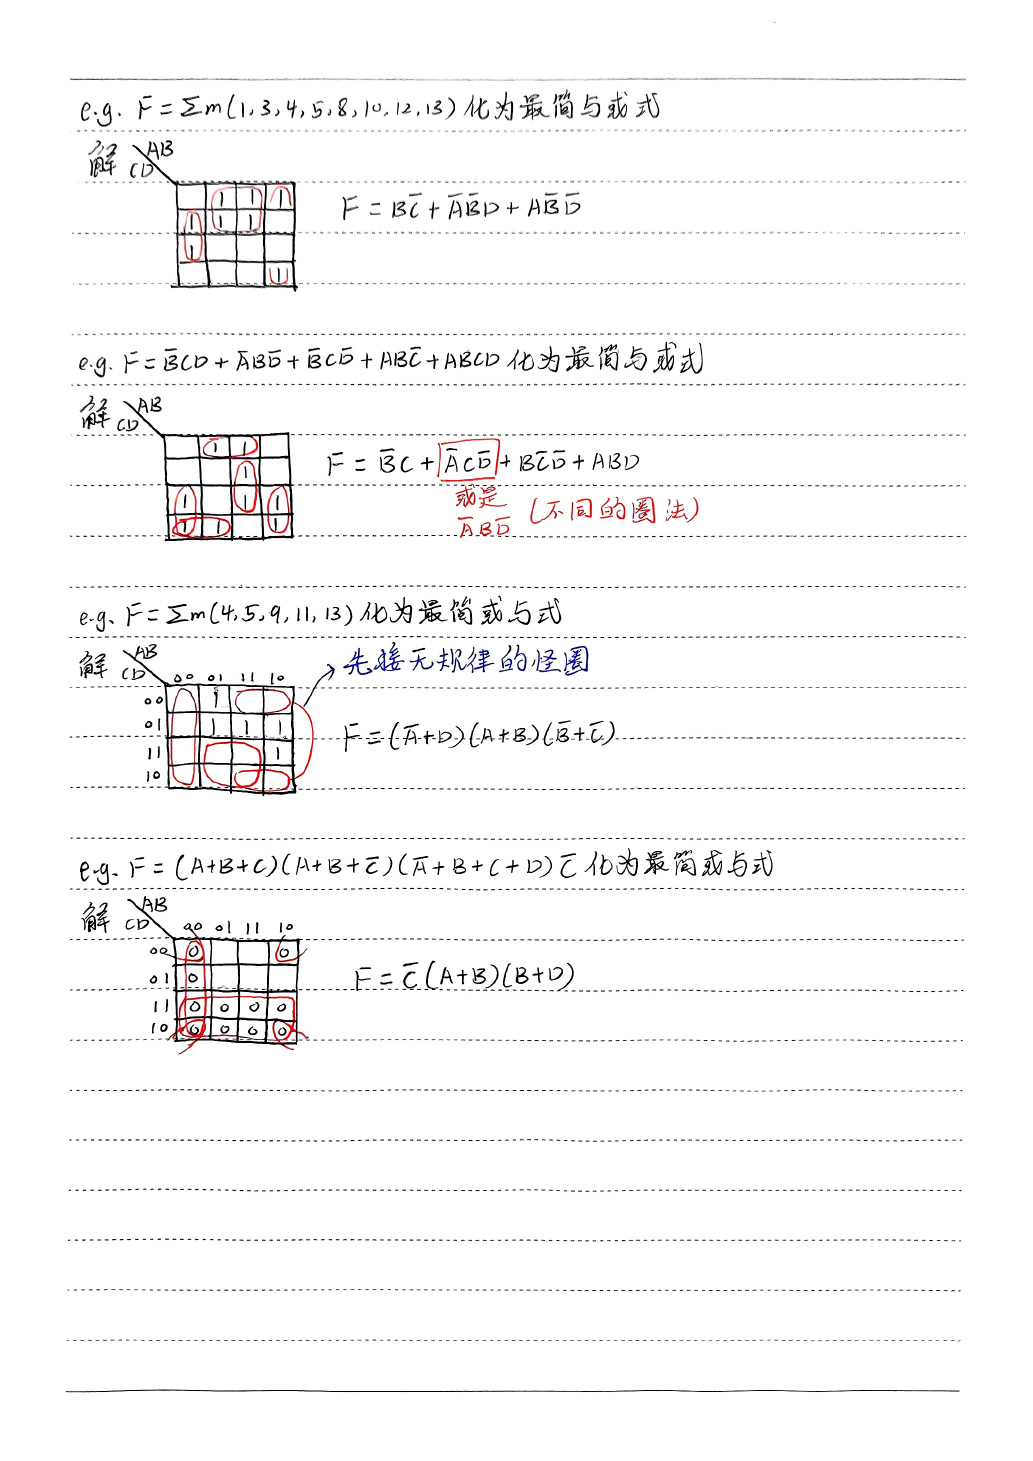 e.g. F = Σm(1,3,4,5,8,10,12,13) 化为最简与或式
解 AB
CD
1 1 1
1 1 1
1
1
F = BC̅ + A̅B̅D + AB̅D̅
e.g. F = B̅CD + A̅BD̅ + B̅CD̅ + ABC̅ + ABCD 化为最简与或式
解 AB
CD
1 1
1
1 1 1
1 1 1
F = B̅C + A̅CD̅ + BC̅D̅ + ABD
或是
A̅BD̅ (不同的圈法)
e.g. F = Σm(4,5,9,11,13) 化为最简或与式
解 AB
CD
00 01 11 10
00 1
01 1 1 1
11 1
10
先接无规律的怪圈
F = (A̅+D)(A+B)(B̅+C̅)
e.g. F = (A+B+C)(A+B+C̅)(A̅+B+C+D)C̅ 化为最简或与式
解 AB
CD
00 01 11 10
00 0 0
01 0
11 0 0 0 0
10 0 0 0 0
F = C̅(A+B)(B+D)